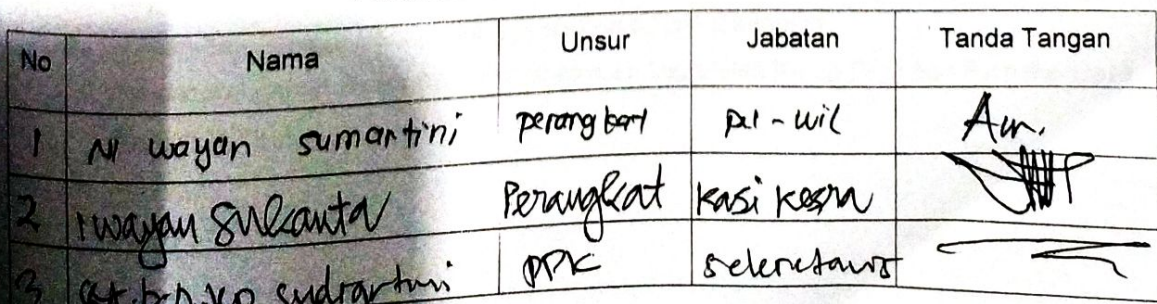 No Nama Unsur Jabatan Tanda Tangan
1 NI wayan sumartini perangkat pel-wil
2 I wayan sukanta Perangkat kasi kesra
3 sudiartini PPK sekretaris